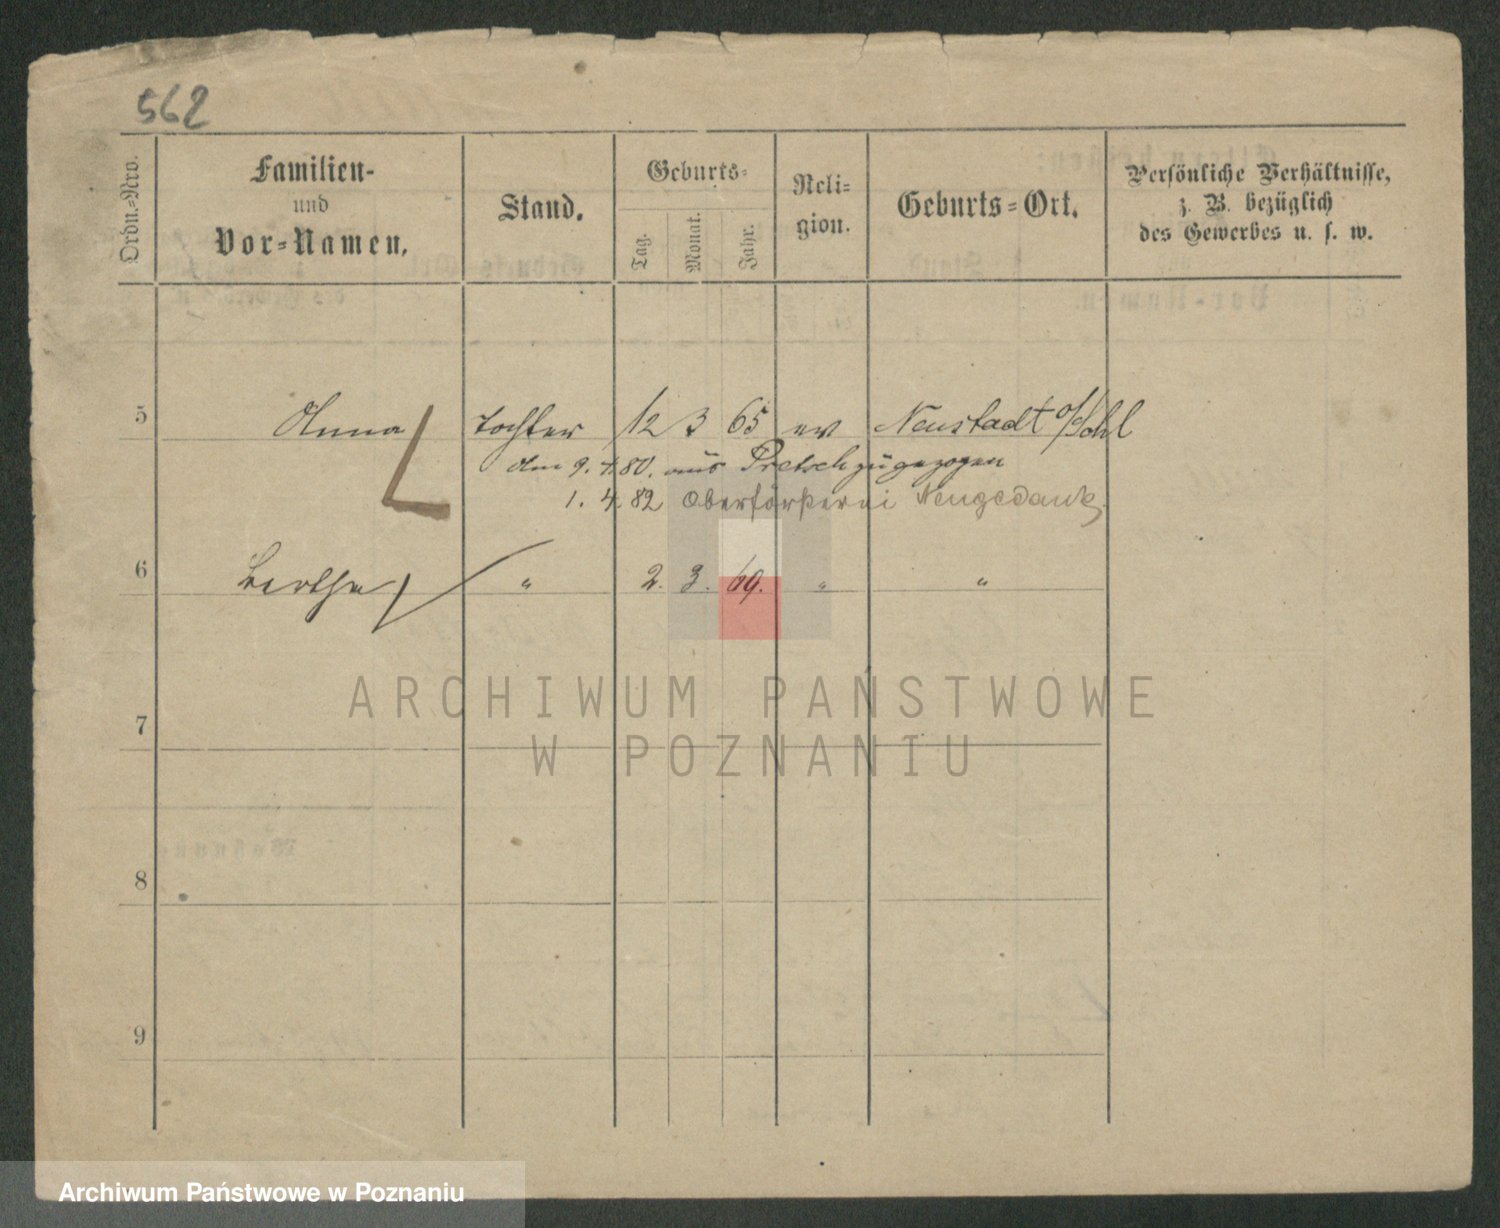 562
Ordn.-Nro.
Familien-
und
Vor-Namen.
Stand.
Geburts-
Tag.
Monat.
Jahr.
Reli-
gion.
Geburts-Ort.
Persönliche Verhältnisse,
z. B. bezüglich
des Gewerbes u. s. w.
5 Anna Tochter 12 3 65 ev Neustadt
den 9. 4. 80. aus Pretsch zugezogen
1. 4. 82 Oberförsterei Neugedank
6 Bertha " 2. 3. 69. " "
ARCHIWUM PAŃSTWOWE
W POZNANIU
7
8
9
Archiwum Państwowe w Poznaniu